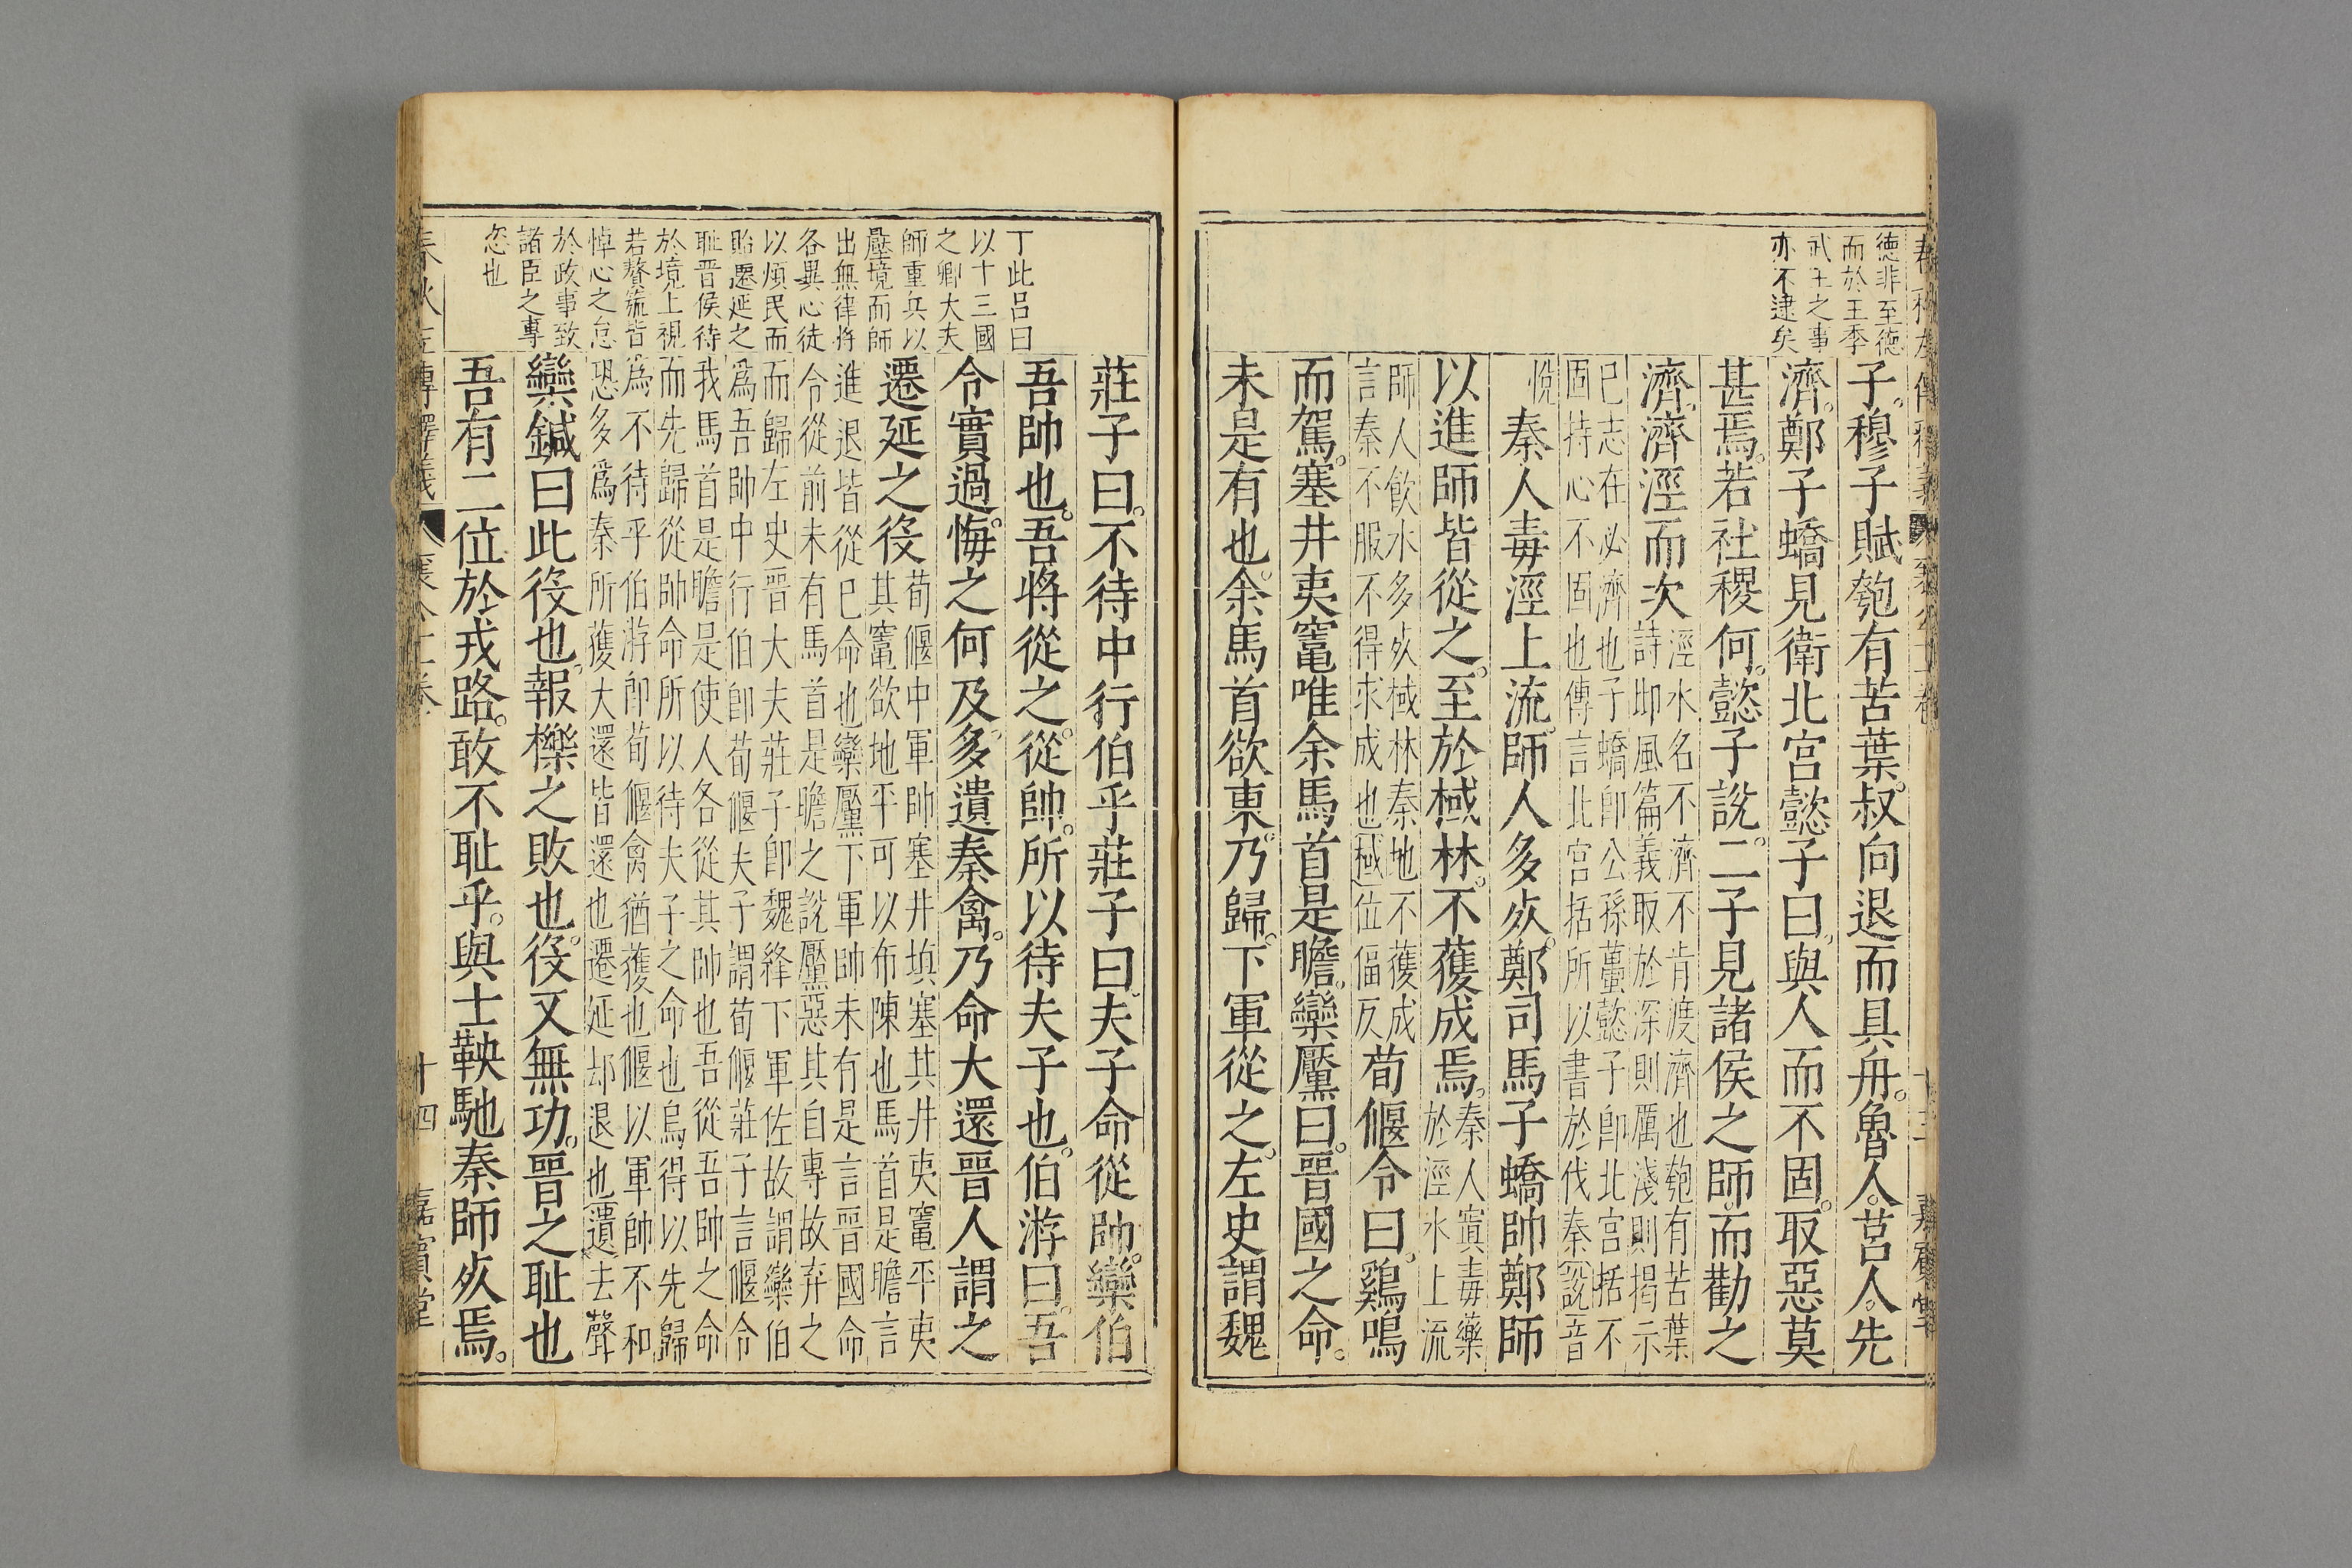 德非至德
而於王季
武王之事
亦不逮矣
子穆子賦匏有苦葉叔向退而具舟魯人莒人先
濟鄭子蟜見衛北宮懿子曰與人而不固取惡莫
甚焉若社稷何懿子說二子見諸侯之師而勸之
濟濟涇而次
涇水名不濟不肯渡濟也匏有苦葉
詩邶風篇義取於深則厲淺則揭示
已志在必濟也子蟜卽公孫蠆懿子卽北宮括不
固持心不固也傳言北宮括所以書於伐秦說音
悅
秦人毒涇上流師人多死鄭司馬子蟜帥鄭師
以進師皆從之至於棫林不獲成焉
秦人寘毒藥
於涇水上流
師人飲水多死棫林秦地不獲成
言秦不服不得求成也棫位偪反
荀偃令曰鷄鳴
而駕塞井夷竈唯余馬首是瞻欒黶曰晉國之命
未是有也余馬首欲東乃歸下軍從之左史謂魏
丁此呂曰
以十三國
之卿大夫
師重兵以
壓境而師
出無律將
各異心徒
以煩民而
貽遷延之
耻晉侯待
於境上視
若贅旒皆
悼心之怠
於政事致
諸臣之專
恣也
莊子曰不待中行伯乎莊子曰夫子命從帥欒伯
吾帥也吾將從之從帥所以待夫子也伯游曰吾
令實過悔之何及多遺秦禽乃命大還晉人謂之
遷延之役
荀偃中軍帥塞井塡塞其井夷竈平夷
其竈欲地平可以布陳也馬首是瞻言
進退皆從已命也欒黶下軍帥未有是言晉國命
令從前未有馬首是瞻之說黶惡其自專故弃之
而歸左史晉大夫莊子卽魏絳下軍佐故謂欒伯
爲吾帥中行伯卽荀偃夫子謂荀偃莊子言偃令
我馬首是瞻是使人各從其帥也吾從吾帥之命
而先歸從帥命所以待夫子之命也烏得以先歸
爲不待乎伯游卽荀偃禽猶獲也偃以軍帥不和
恐多爲秦所獲大還皆還也遷延却退也遺去聲
欒鍼曰此役也報櫟之敗也役又無功晉之耻也
吾有二位於戎路敢不耻乎與士鞅馳秦師死焉
十四
嘉賓堂